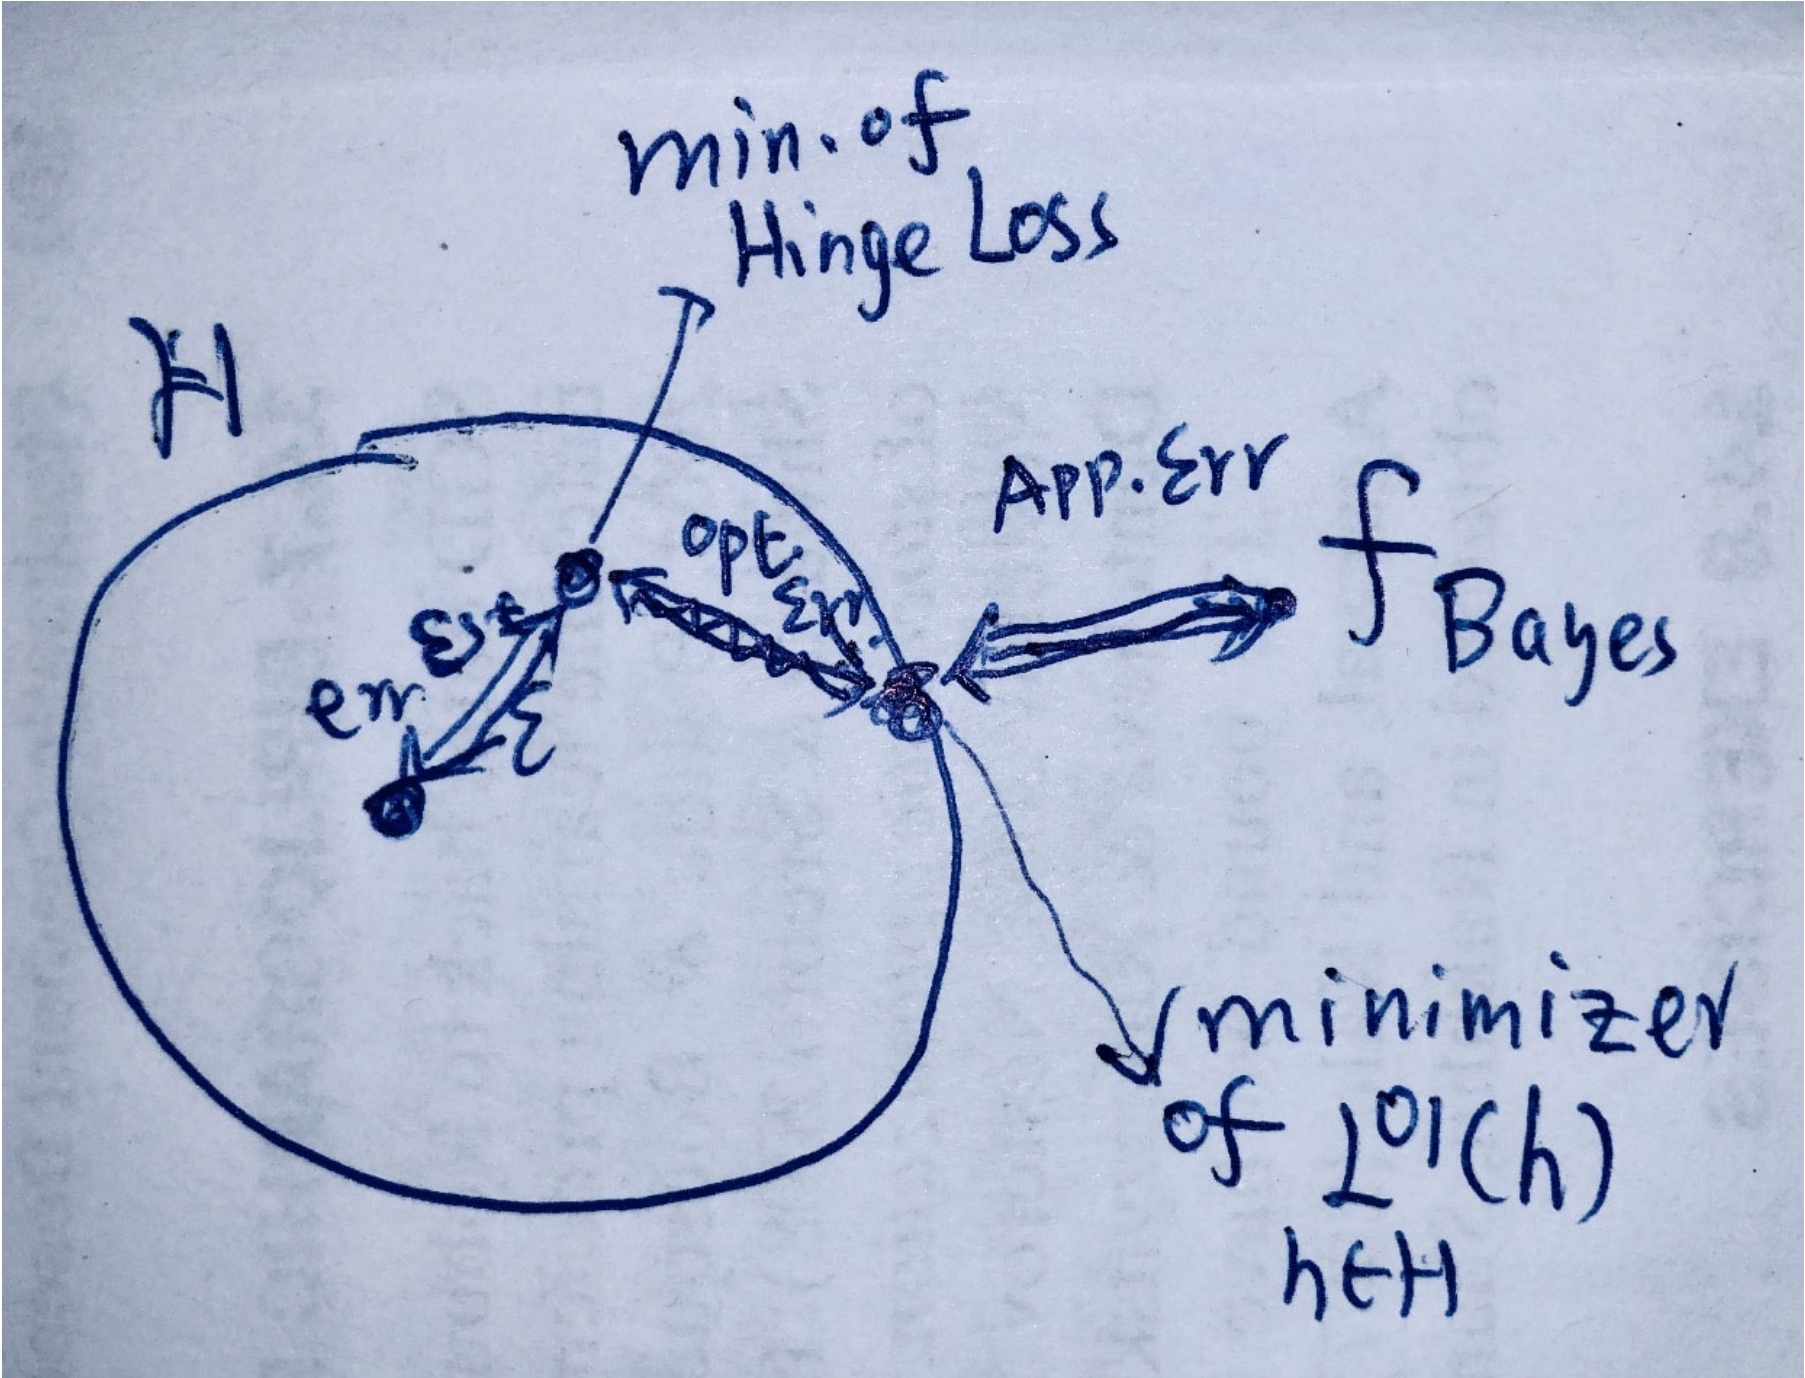 min. of
Hinge Loss
H
App. Err
f Bayes
opt.
Err.
Est
err.
ε
minimizer
of L⁰¹(h)
h∈H